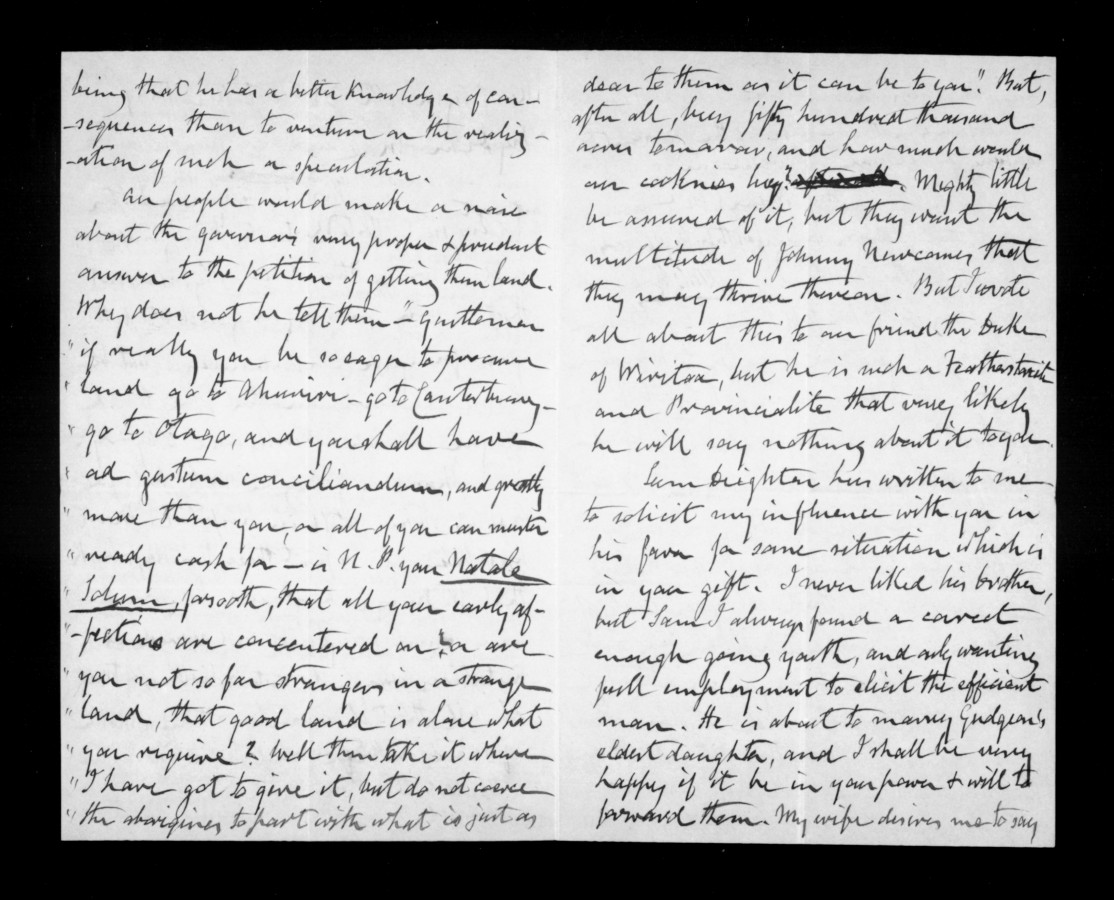 being that he has a better knowledge of con-
-sequences than to venture on the realiz-
-ation of such a speculation.
Our people would make a noise
about the governor's very proper & prudent
answer to the petition of getting them land.
Why does not he tell them - "Gentlemen
" if really you be so eager to procure
" land go to Ahuriri - go to Canterbury -
" go to Otago, and you shall have
" ad gustum conciliandum, and greatly
" more than you, or all of you can muster
" ready cash for - is N. P. your Natale
" Solum, forsooth, that all your early af-
"-fections are concentered on? or are
" you not so far strangers in a strange
" land, that good land is alone what
" you require? Well then take it where
" I have got to give it, but do not coerce
" the aborigines to part with what is just as
dear to them as it can be to you." But,
after all, buy fifty hundred thousand
acres tomorrow, and how much would
our cocknies buy? . Mighty little
be assured of it; but they want the
multitude of Johnny Newcomes that
they may thrive thereon. But I wrote
all about this to our friend the Duke
of Wiritoa, but he is such a Featherstonite
and Provincialite that very likely
he will say nothing about it to you.
Sam Deighton has written to me
to solicit my influence with you in
his favor for some situation which is
in your gift. I never liked his brother,
but Sam I always found a correct
enough going youth, and only wanting
full employment to elicit the efficient
man. He is about to marry Gudgeon's
eldest daughter, and I shall be very
happy if it be in your power & will to
forward them. My wife desires me to say